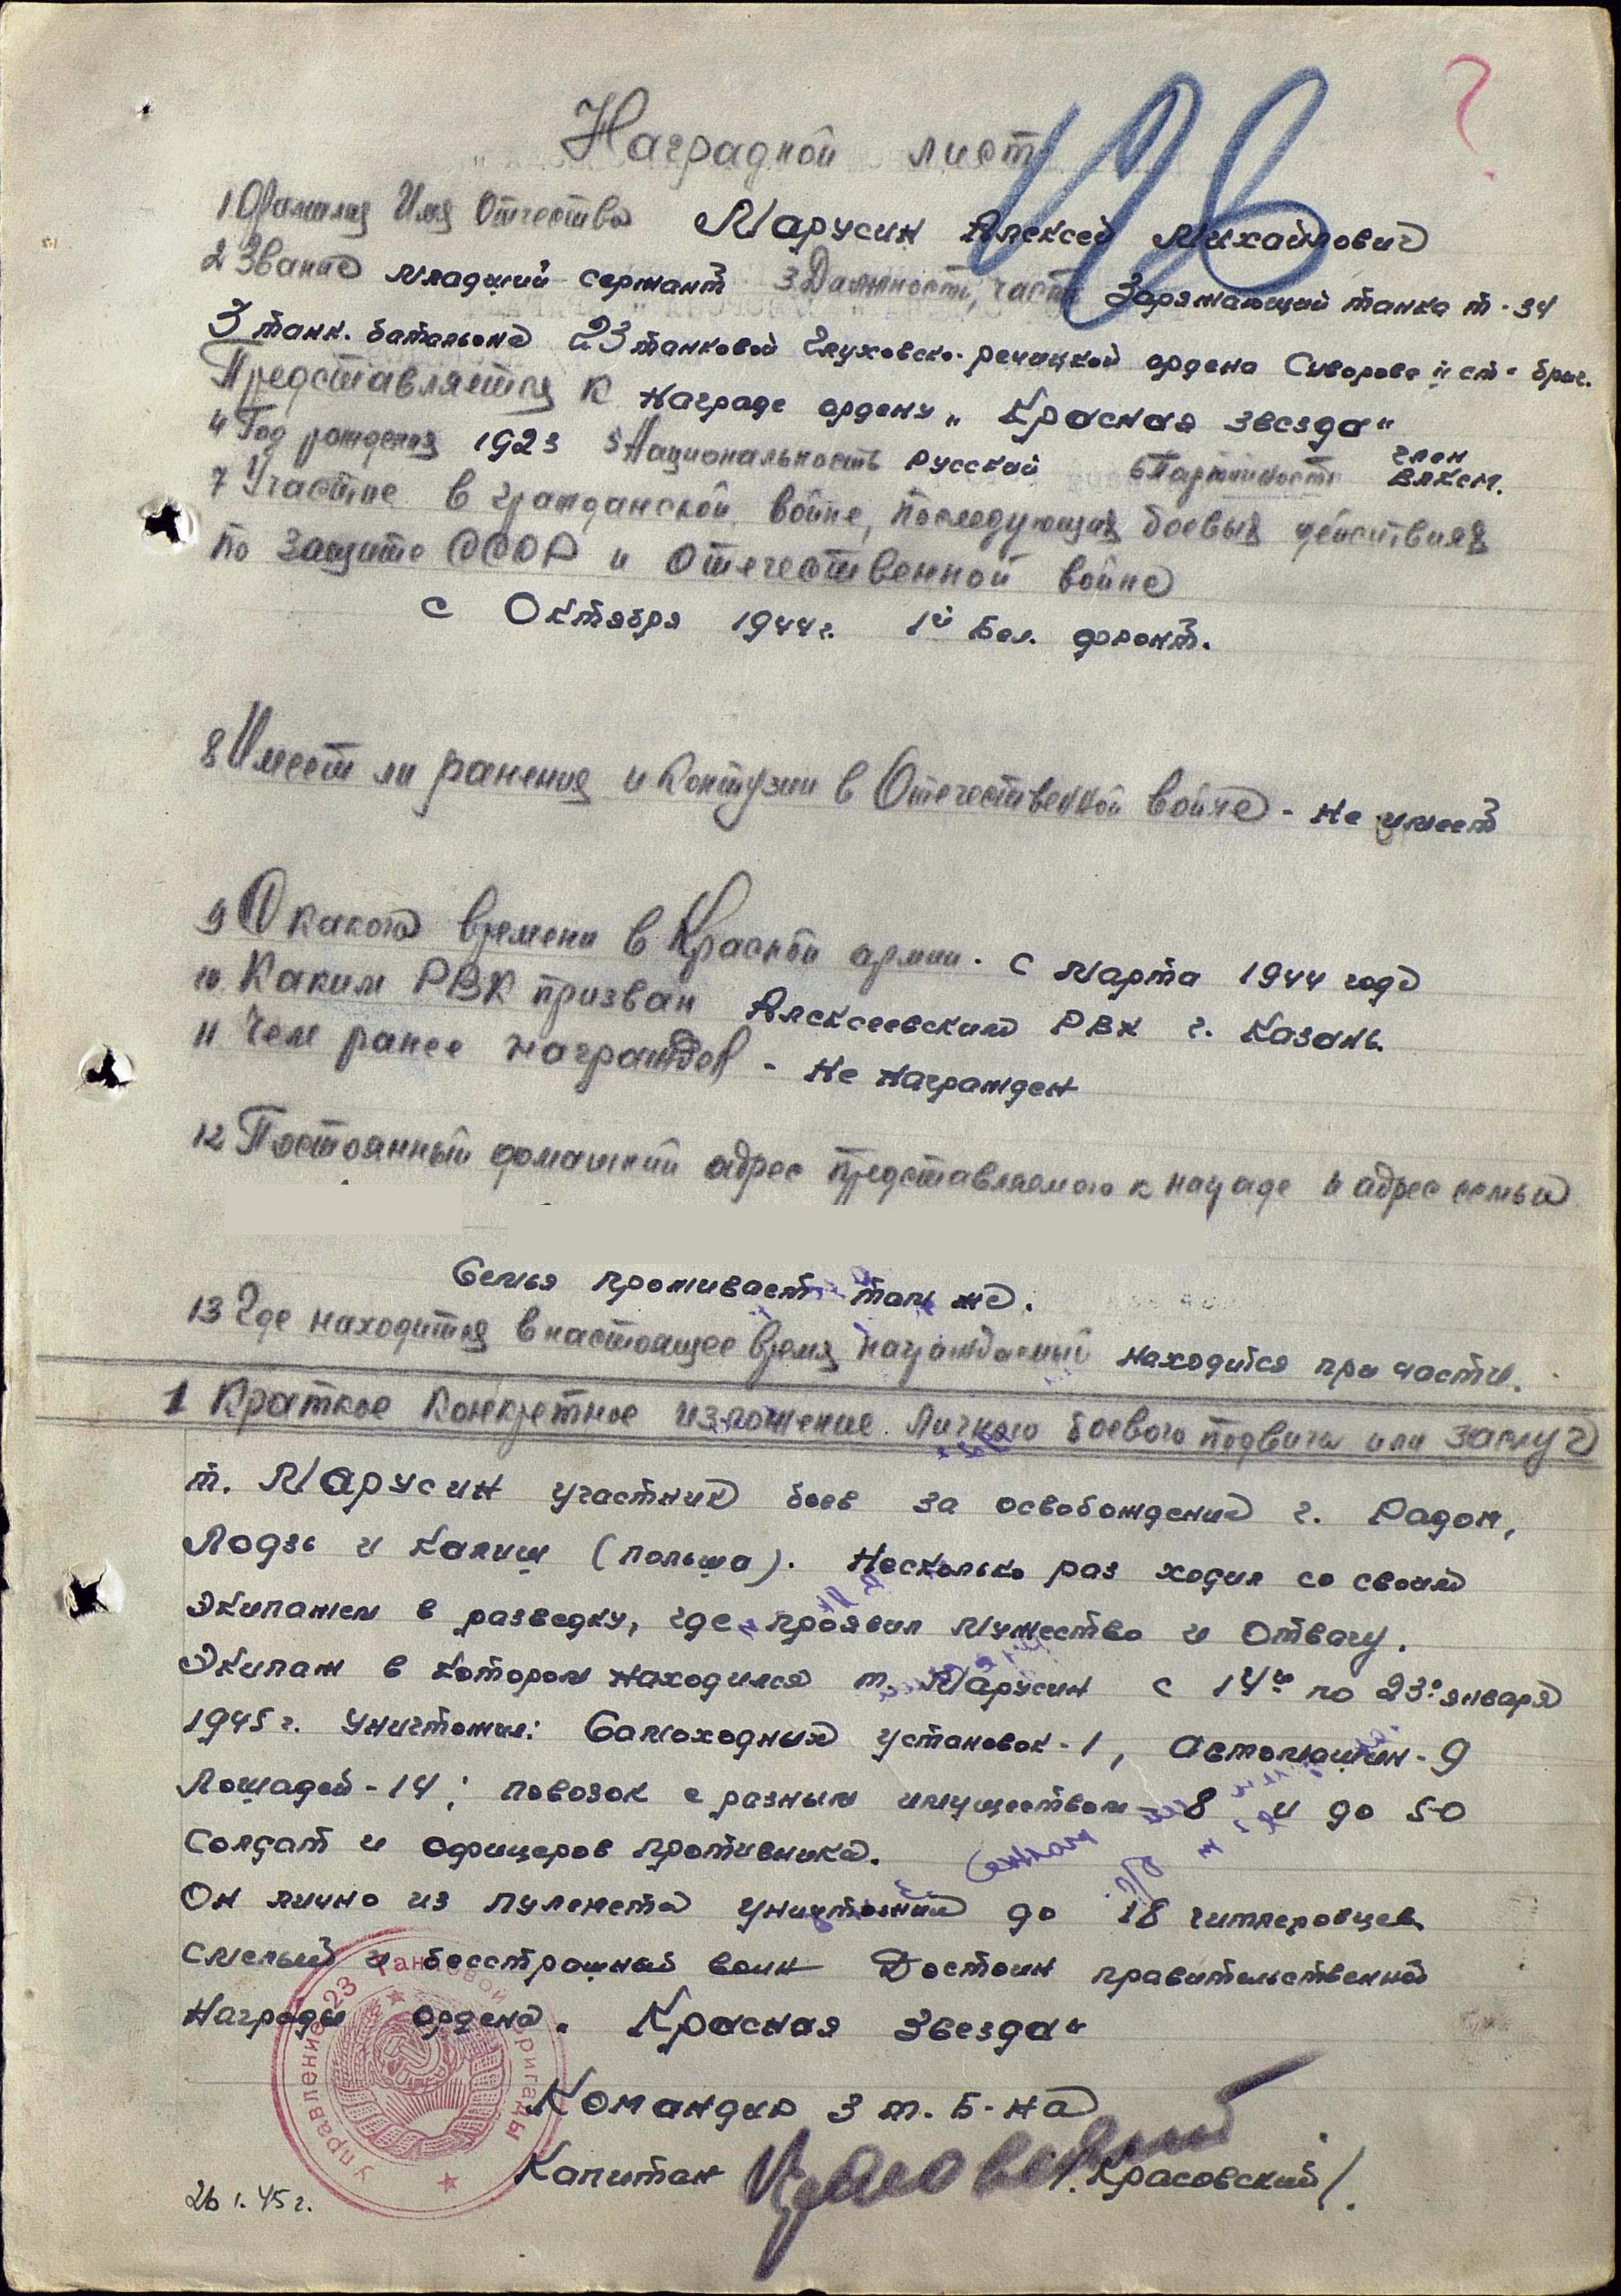 Наградной лист
1 Фамилия Имя Отчество Марусин Алексей Михайлович
2 Звание младший сержант 3 Должность, часть Заряжающий танка Т-34
3 танк. батальона 23 танковой Глуховско-речицкой ордена Суворова II ст. бриг.
Представляется к награде ордену „Красная звезда"
4 Год рождения 1923 5 Национальность русский 6 Партийность член ВЛКСМ.
7 Участие в гражданской войне, последующих боевых действиях
по защите СССР и отечественной войне
с Октября 1944 г. 1й Бел. фронт.
8 Имеет ли ранения и контузии в Отечественной войне - Не имеет
9 С какого времени в Красной армии. с марта 1944 года
10 Каким РВК призван Алексеевским РВК г. Казань.
11 Чем ранее награжден - Не награжден
12 Постоянный домашний адрес представляемого к награде и адрес семьи
Семья проживает там же.
13 Где находится в настоящее время награждаемый находится при части.
1 Краткое конкретное изложение личного боевого подвига или заслуг
т. Марусин участник боев за освобождение г. Радом,
Лодзь и Калиш (польша). Несколько раз ходил со своим
Экипажем в разведку, где проявил мужество и отвагу.
Экипаж в котором находился т. Марусин с 14го по 23е января
1945 г. уничтожил: Самоходных установок - 1, автомашин - 9
Лошадей - 14; повозок с разным имуществом - 8 и до 50
Солдат и офицеров противника.
Он лично из пулемета уничтожил до 18 гитлеровцев
смелый и бесстрашный воин Достоин правительственной
Награды ордена „Красная Звезда"
Командир 3 т. Б-на
Капитан /Красовский/.
26.1.45 г.
Управление 23 Танковой бригады